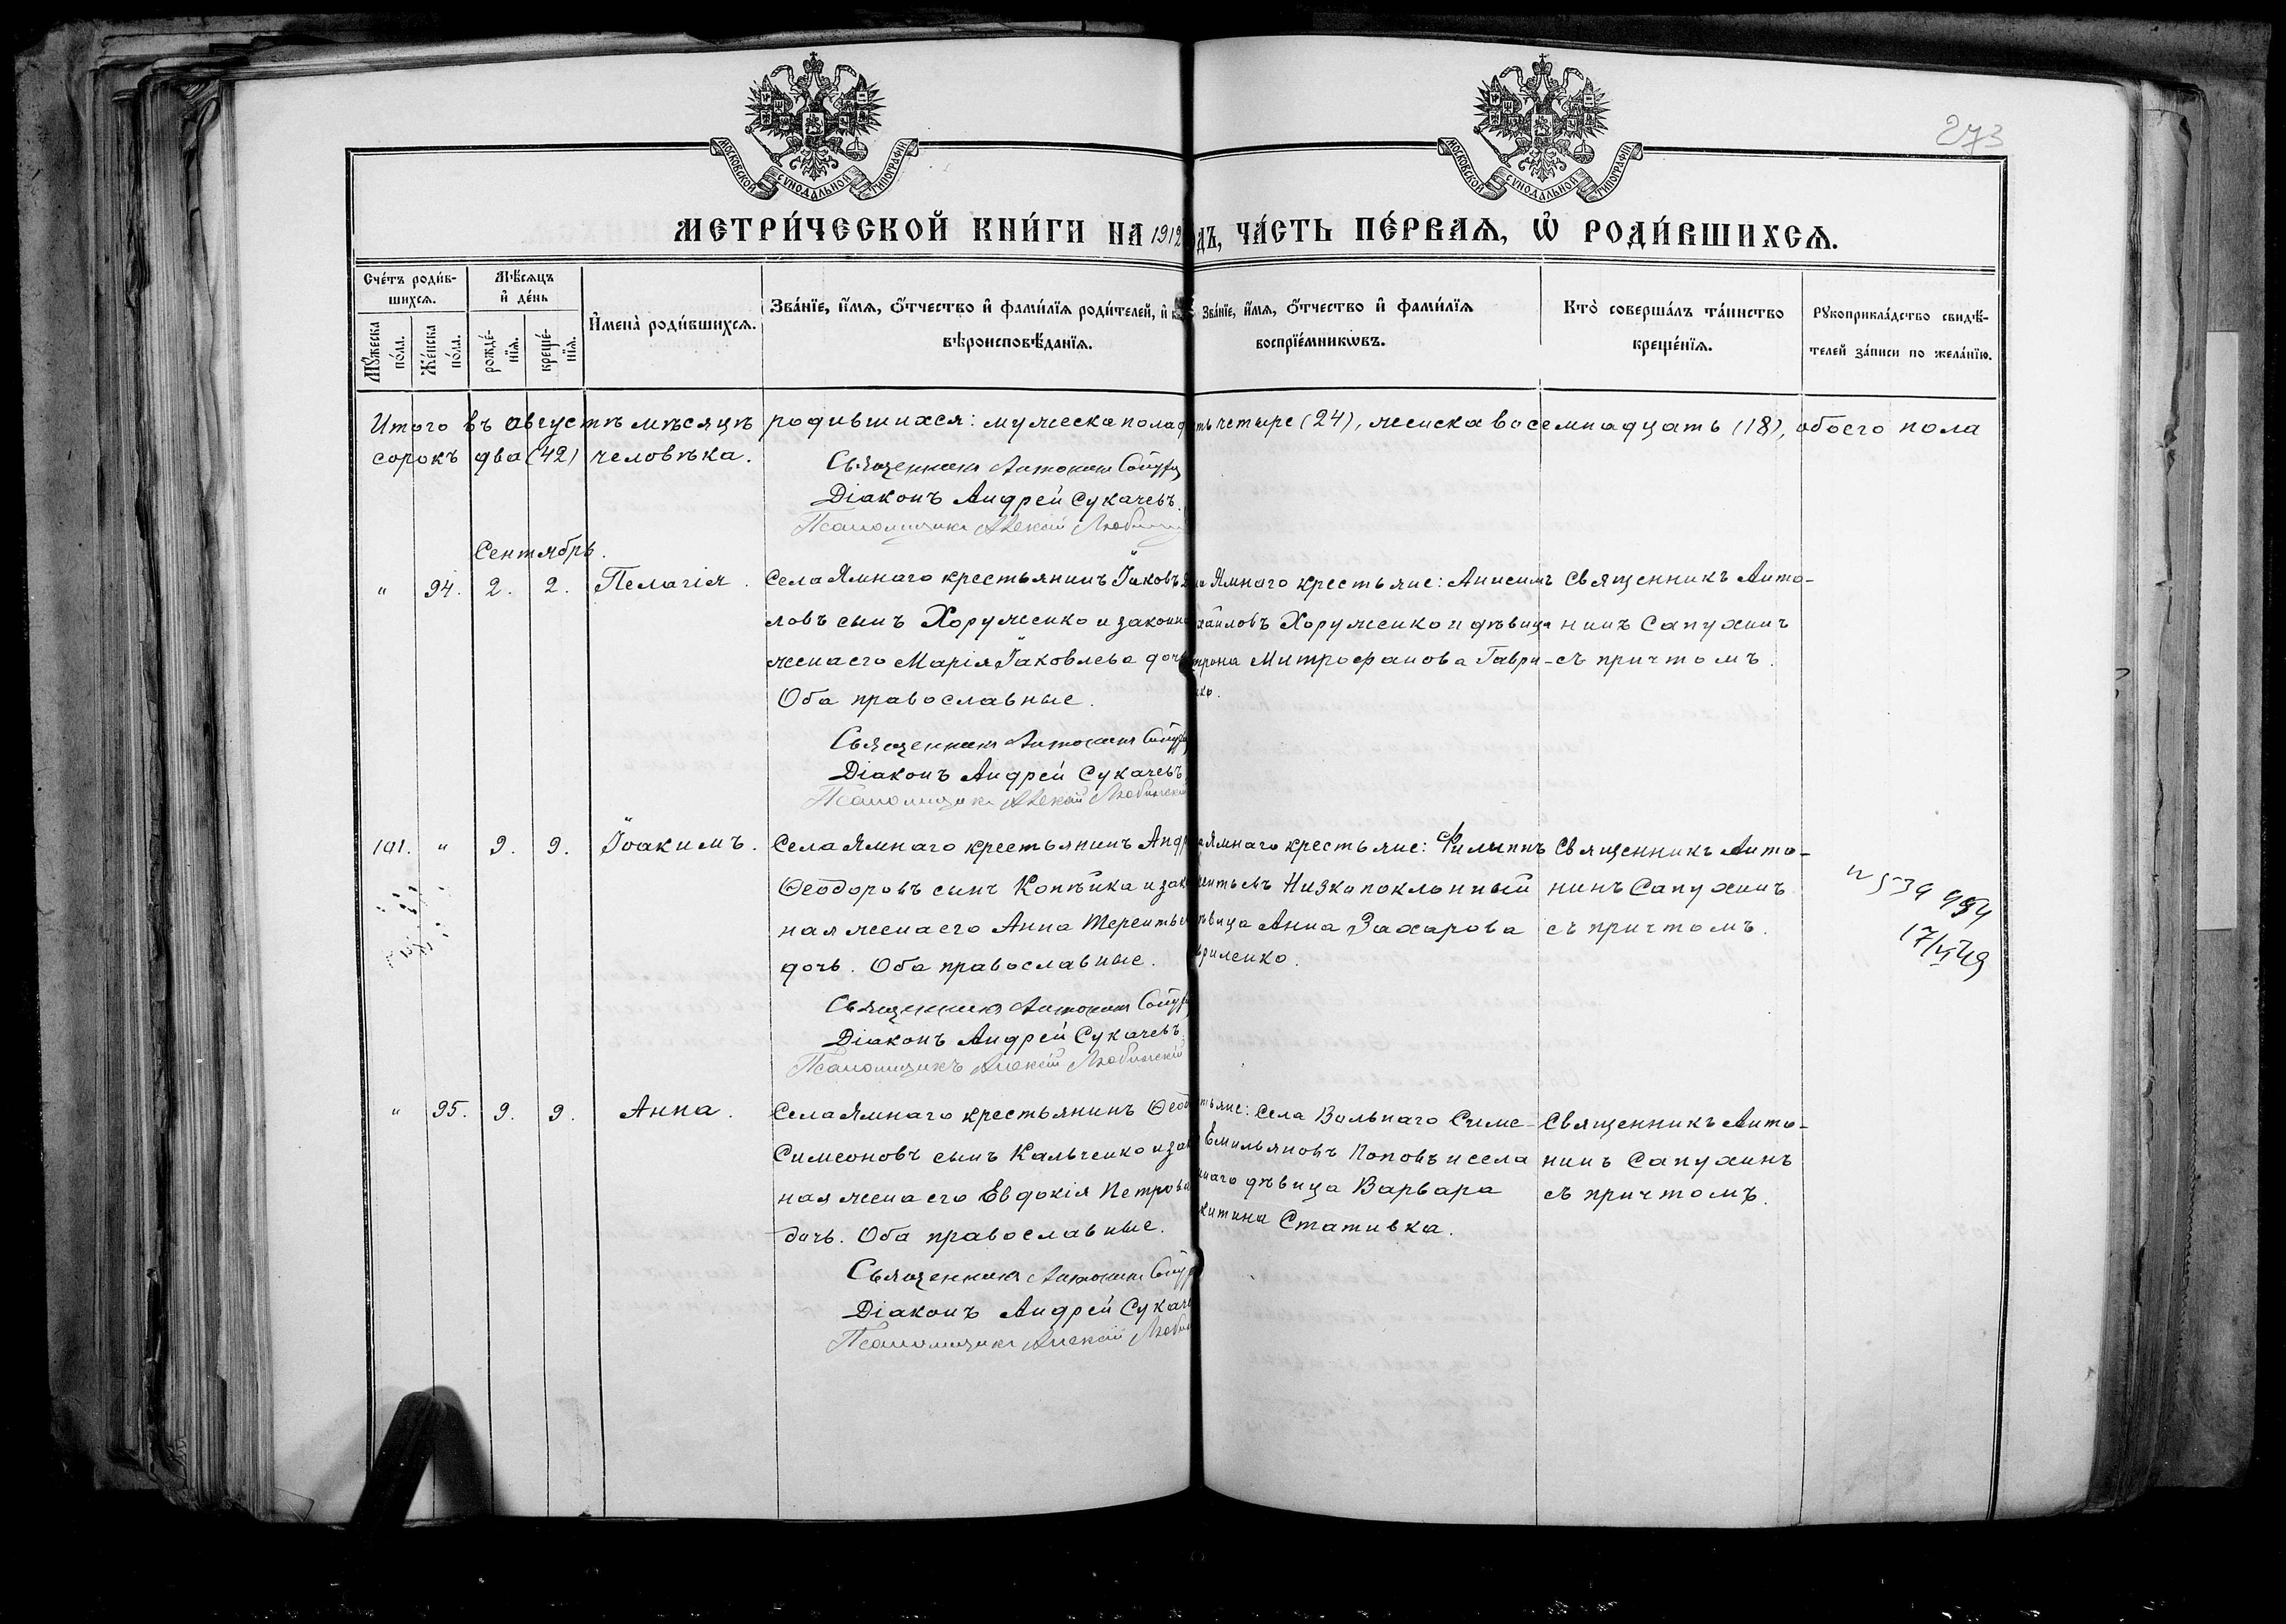 273
МОСКОВСКОЙ СѴНОДАЛЬНОЙ ТИПОГРАФІИ
МОСКОВСКОЙ СѴНОДАЛЬНОЙ ТИПОГРАФІИ
МЕТРИ́ЧЕСКОЙ КНИ́ГИ НА 1912 ДЪ, ЧА́СТЬ ПЕ́РВАЯ, Ѡ РОДИ́ВШИХСЯ.
Сче́тъ роди́в-
шихся.
Мꙋ́жеска по́ла.
Же́нска по́ла.
Мѣ́сяцъ
и де́нь
рожде́-
нїя.
креще́-
нїя.
Имена̀ роди́вшихся.
Зва́нїе, и́мя, о́тчество и фами́лїя роди́телей, и
вѣроисповѣ́данїя.
Зва́нїе, и́мя, о́тчество и фами́лїя
воспрїе́мникѡвъ.
Кто̀ соверша́лъ та́инство
креще́нїя.
Рꙋкоприкла́дство свидѣ́-
телей за́писи по жела́нїю.
Итого въ августѣ мѣсяцѣ родившихся: мужеска пола ть четыре (24), женска восемнадцать (18), обоего пола
сорокъ два (42) человѣка.
Священникъ Антонинъ
Діаконъ Андрей Сукачевъ.
Псаломщикъ Алексій
Сентябрь.
" 94. 2. 2. Пелагія. Села Ямнаго крестьянинъ Іаковъ
ловъ сынъ Хоруженко и законн
жена его Марія Іаковлева дочь
Оба православные.
Ямнаго крестьяне: Анисимъ
хаиловъ Хоруженко и дѣвица
трона Митрофанова Гаври-
нко.
Священникъ Анто-
нинъ Сапухинъ
съ причтомъ.
Священникъ Антонинъ
Діаконъ Андрей Сукачевъ
Псаломщикъ Алексій Любинскій
101. " 9. 9. Іоакимъ. Села Ямнаго крестьянинъ Андр
Ѳеодоровъ сынъ Копѣйка и зак
ная жена его Анна Терентьев
дочь. Оба православные.
Ямнаго крестьяне: Филиппъ
рентьевъ Низкопоклонный
ѣвица Анна Захарова
вриленко.
Священникъ Анто-
нинъ Сапухинъ
съ причтомъ.
Священникъ Антонинъ
Діаконъ Андрей Сукачевъ
Псаломщикъ Алексій Любинскій
" 95. 9. 9. Анна. Села Ямнаго крестьянинъ Ѳеод
Симеоновъ сынъ Кальченко и зак
ная жена его Евдокія Петрова
дочь. Оба православные.
тьяне: села Вольнаго Симе-
Емильяновъ Поповъ и села
мнаго дѣвица Варвара
китина Стативка.
Священникъ Анто-
нинъ Сапухинъ
съ причтомъ.
Священникъ Антонинъ
Діаконъ Андрей Сукаче
Псаломщикъ Алексій Люби